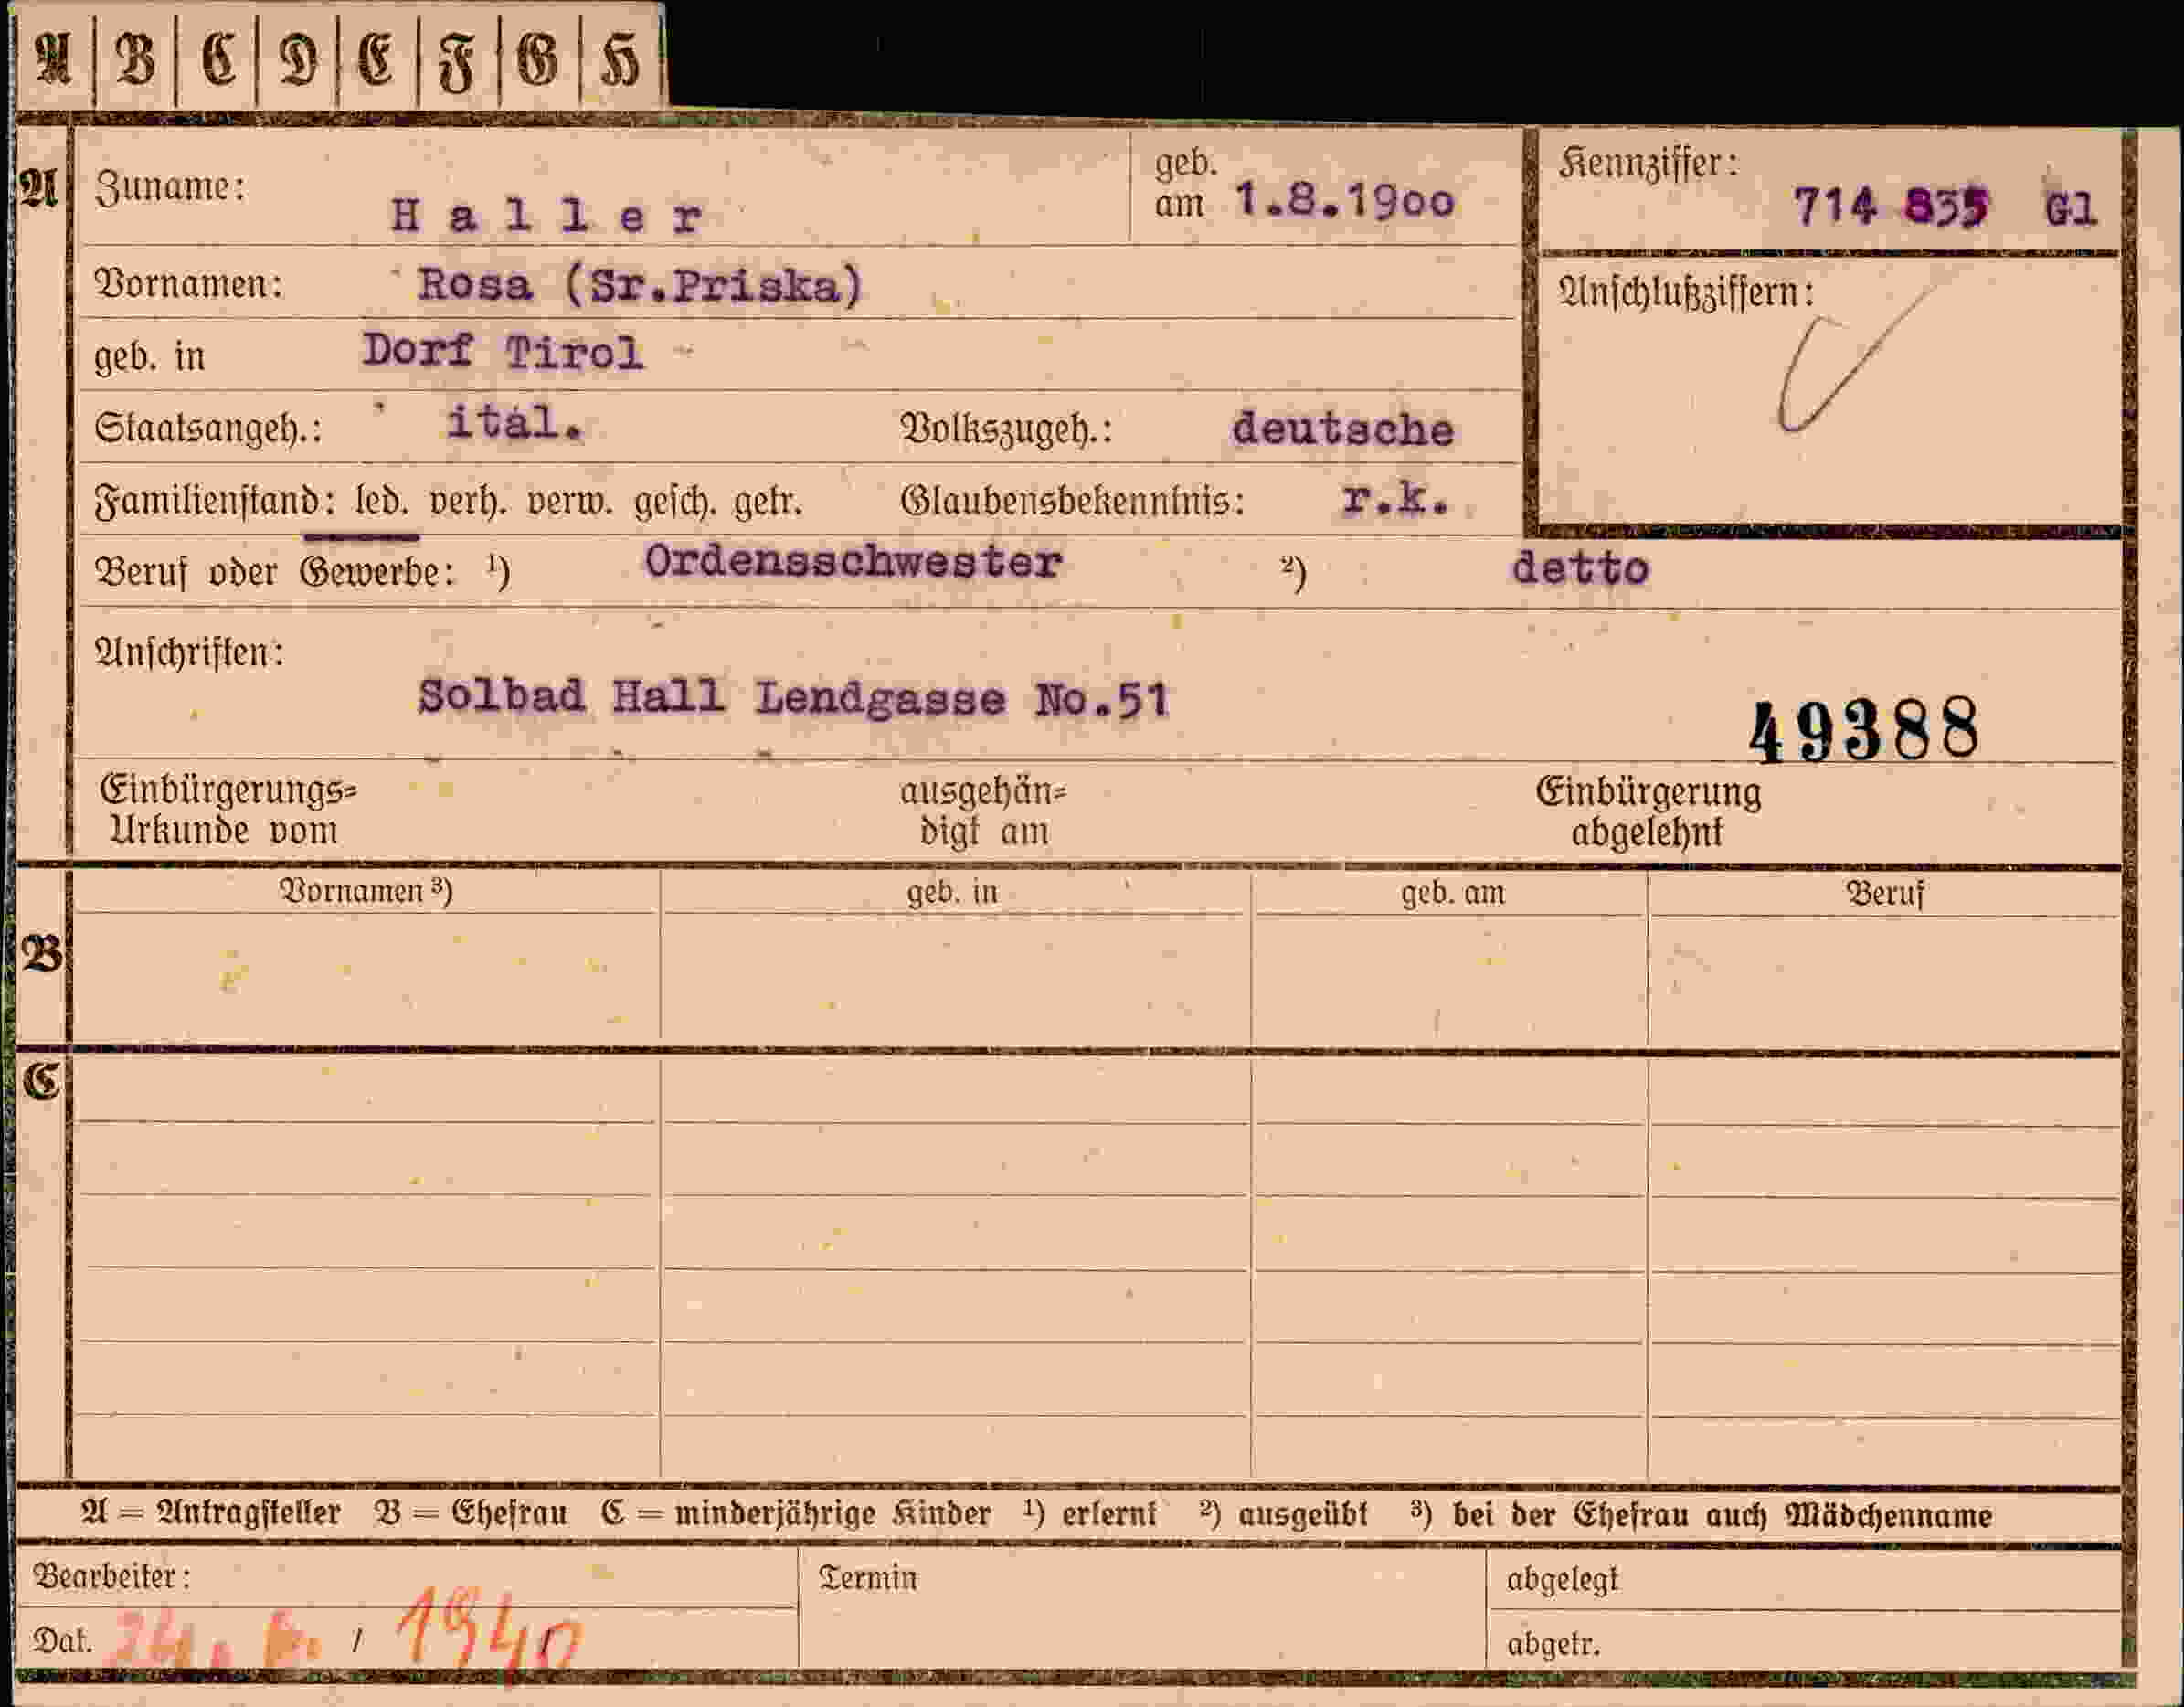 A B C D E F G H
A
Zuname: Haller geb. am 1.8.1900 Kennziffer: 714 835 Gl
Vornamen: Rosa (Sr.Priska) Anschlußziffern:
geb. in Dorf Tirol
Staatsangeh.: ital. Volkszugeh.: deutsche
Familienstand: led. verh. verw. gesch. getr. Glaubensbekenntnis: r.k.
Beruf oder Gewerbe: ¹) Ordensschwester ²) detto
Anschriften:
Solbad Hall Lendgasse No.51 49388
Einbürgerungs= ausgehän= Einbürgerung
Urkunde vom digt am abgelehnt
Vornamen ³) geb. in geb. am Beruf
B
C
A = Antragsteller B = Ehefrau C = minderjährige Kinder ¹) erlernt ²) ausgeübt ³) bei der Ehefrau auch Mädchenname
Bearbeiter: Termin abgelegt
Dat. / 1940 abgetr.